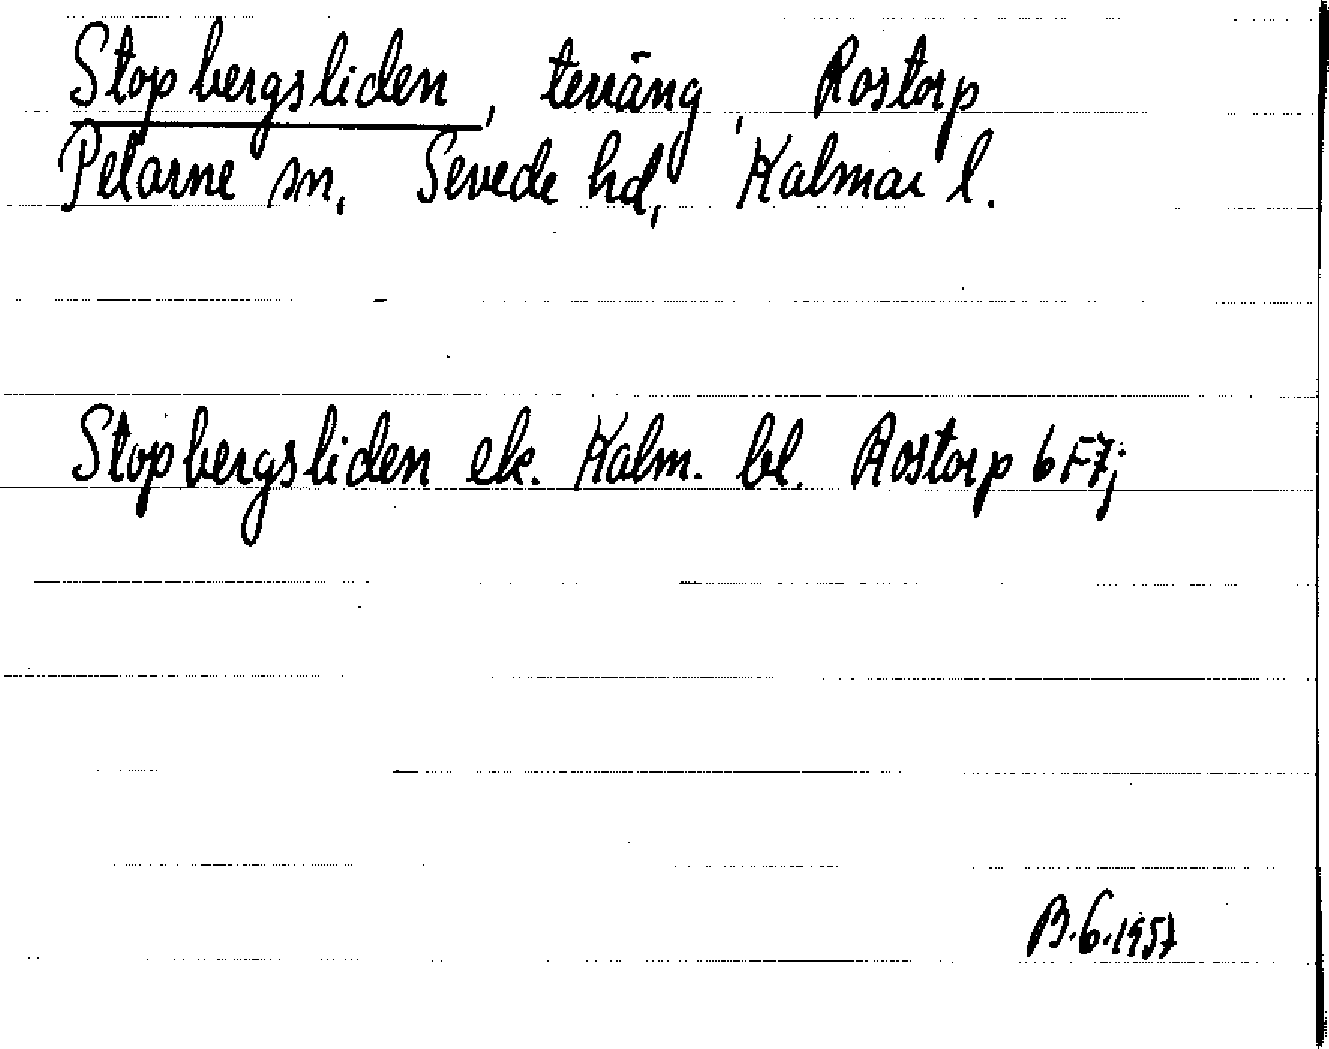 Stopbergsliden, terräng, Rostorp
Pelarne sn, Sevede hd, Kalmar l.
Stopbergsliden ek. Kalm. bl. Rostorp 6F7j
B.G.1957